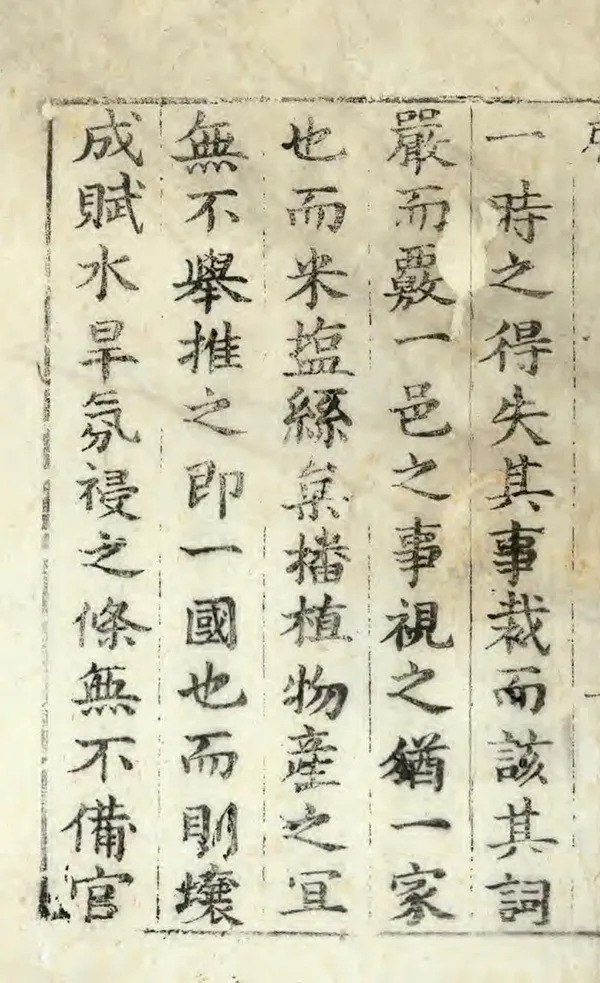 一時之得失其事裁而該其詞
嚴而覈一邑之事視之猶一家
也而米塩絲枲播植物產之宜
無不舉推之即一國也而則壤
成賦水旱氛祲之條無不備官